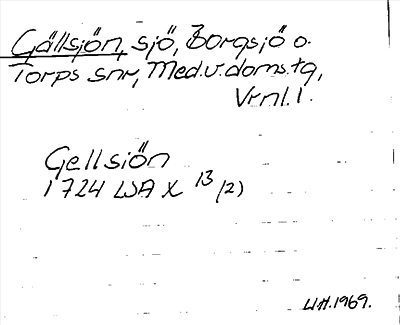 Gällsjön, sjö, Borgsjö o.
Torps snr, Med.v.doms.tg,
Vrnl.l.
Gellsiön
1724 LSA X 13/2)
W.H.1969.